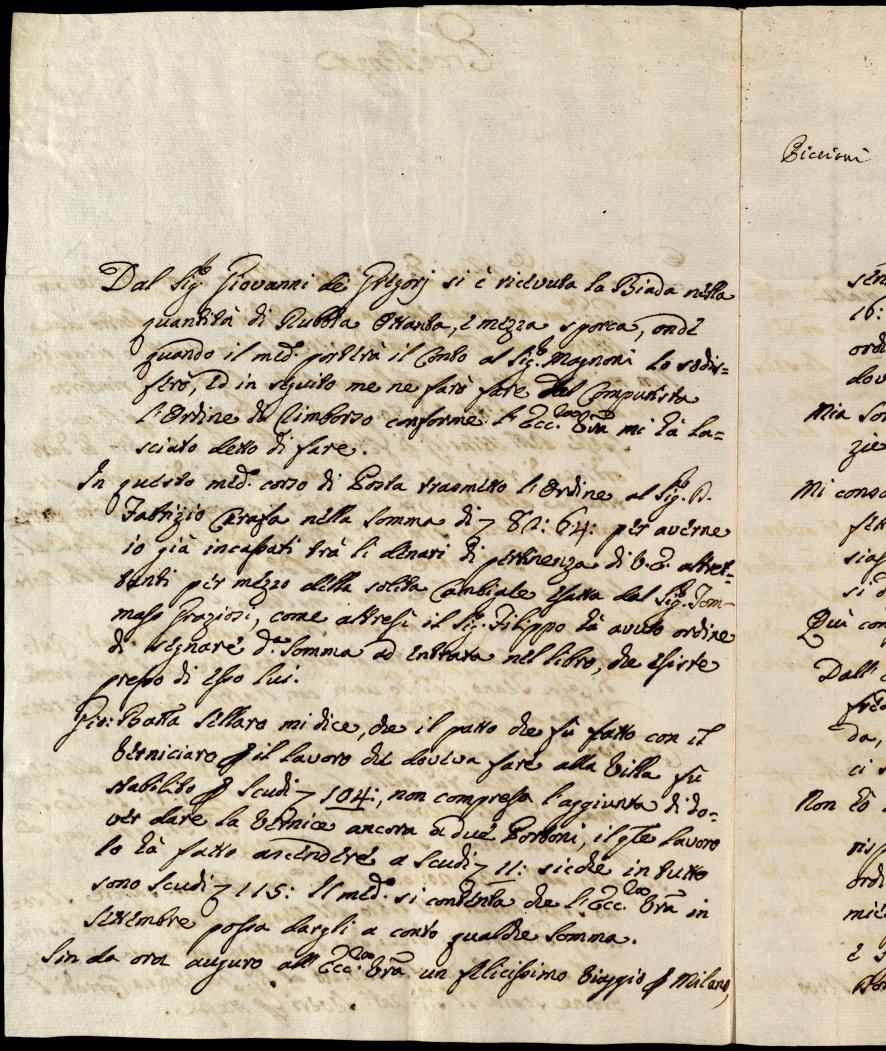 Piccioni
Dal Sig.re Giovanni de Gregorj si è ricevuta la Biada nella
quantità di Rubbia Ottanta, e mezza sporca, onde
quando il med.o porterà il Conto al Sig.re Magnoni lo sodis=
ferò, ed in seguito me ne farò fare dal Computista
l'Ordine di Rimborso conforme l'Ecc.za Vra mi hà la=
sciato detto di fare.
In questo med.o corso di Posta trasmetto l'Ordine al Sig.re D.
Fabrizio Carafa nella somma di 82: 64: per averne
io già incassati trà li denari di pertinenza di V.E. altret=
tanti per mezzo della solita Cambiale esatta dal Sig.re Tom=
maso Graziosi, come altresì il Sig.re Filippo hà avuto ordine
di segnare d.a Somma ad entrata nel libro, che esiste
presso di esso lui.
Gio: Batta Sellaro mi dice, che il patto che fù fatto con il
Verniciaro p il lavoro che doveva fare alla Villa fù
stabilito p Scudi 104:, non compresa l'aggiunta di do=
ver dare la Vernice ancora a due Portoni, il qle lavoro
lo hà fatto ascendere a Scudi 11: sicche in tutto
sono Scudi 115: Il med.o si contenta che l'Ecc.za Vra in
Settembre possa dargli a conto qualche somma.
Sin da ora auguro all'Ecc.za Vra un felicissimo Viaggio p Milano,
sen
16:
ordi
dov
Mia So
zie
Mi conso
siass
si d
Quì con
Dall'
fred
da,
ci s
Non hò
risp
ordi
mie
è s